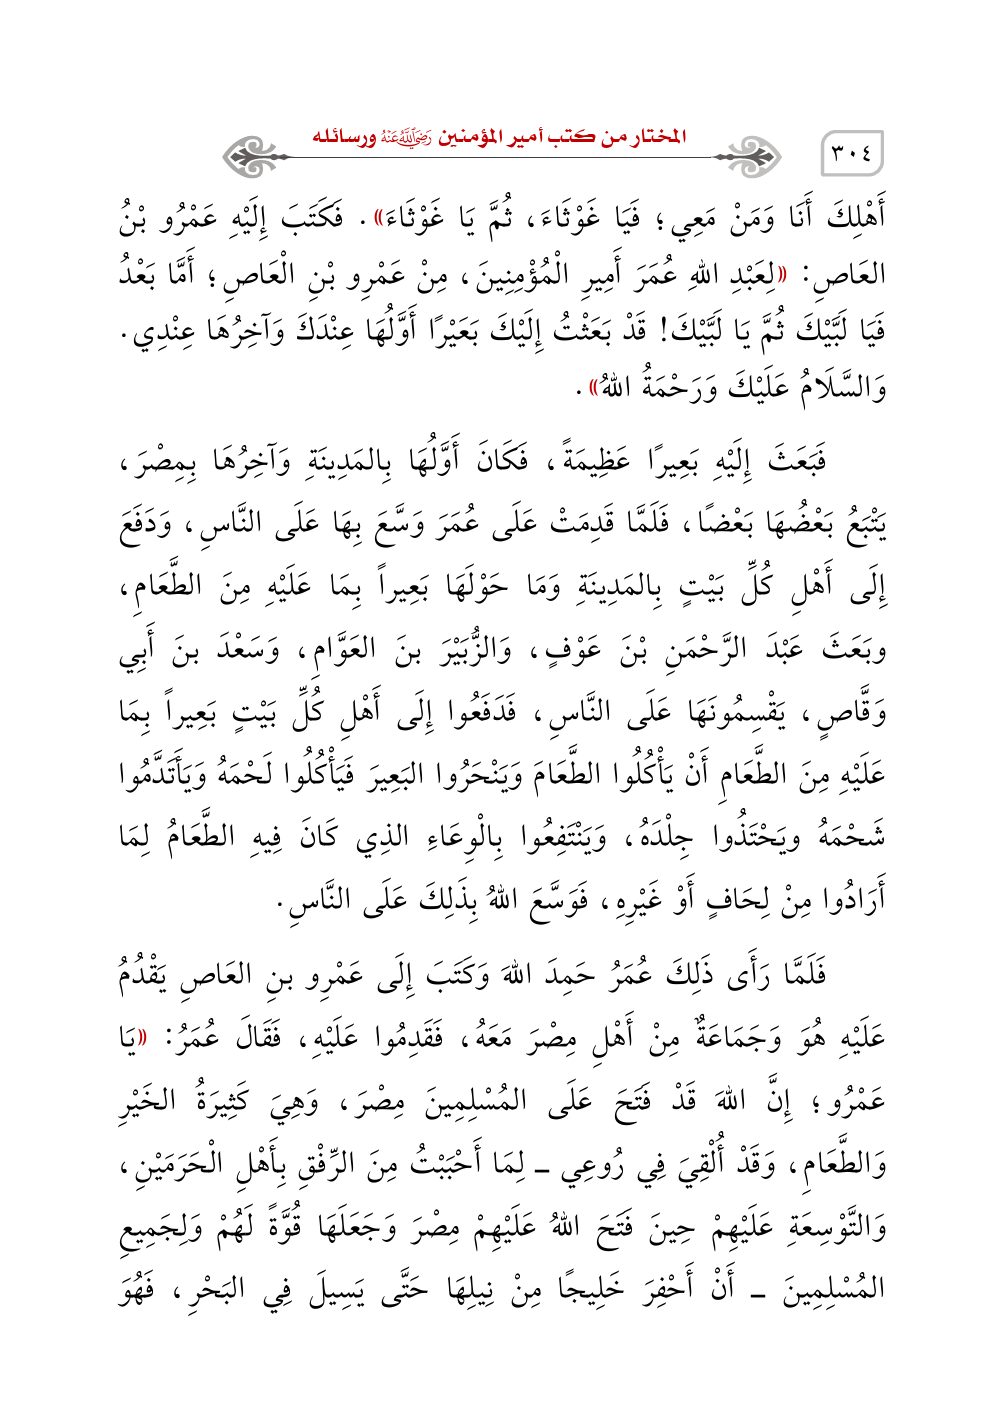 ٣٠٤
المختار من كتب أمير المؤمنين رَضِيَ اللَّهُ عَنْهُ ورسائله
أَهْلِكَ أَنَا وَمَنْ مَعِي؛ فَيَا غَوْثَاءَ، ثُمَّ يَا غَوْثَاءَ». فَكَتَبَ إِلَيْهِ عَمْرُو بْنُ
العَاصِ: «لِعَبْدِ اللهِ عُمَرَ أَمِيرِ الْمُؤْمِنِينَ، مِنْ عَمْرِو بْنِ الْعَاصِ؛ أَمَّا بَعْدُ
فَيَا لَبَّيْكَ ثُمَّ يَا لَبَّيْكَ! قَدْ بَعَثْتُ إِلَيْكَ بَعَيْرًا أَوَّلُهَا عِنْدَكَ وَآخِرُهَا عِنْدِي.
وَالسَّلَامُ عَلَيْكَ وَرَحْمَةُ اللهُ».
فَبَعَثَ إِلَيْهِ بَعِيرًا عَظِيمَةً، فَكَانَ أَوَّلُهَا بِالمَدِينَةِ وَآخِرُهَا بِمِصْرَ،
يَتْبَعُ بَعْضُهَا بَعْضًا، فَلَمَّا قَدِمَتْ عَلَى عُمَرَ وَسَّعَ بِهَا عَلَى النَّاسِ، وَدَفَعَ
إِلَى أَهْلِ كُلِّ بَيْتٍ بِالمَدِينَةِ وَمَا حَوْلَهَا بَعِيراً بِمَا عَلَيْهِ مِنَ الطَّعَامِ،
وبَعَثَ عَبْدَ الرَّحْمَنِ بْنَ عَوْفٍ، وَالزُّبَيْرَ بنَ العَوَّامِ، وَسَعْدَ بنَ أَبِي
وَقَّاصٍ، يَقْسِمُونَهَا عَلَى النَّاسِ، فَدَفَعُوا إِلَى أَهْلِ كُلِّ بَيْتٍ بَعِيراً بِمَا
عَلَيْهِ مِنَ الطَّعَامِ أَنْ يَأْكُلُوا الطَّعَامَ وَيَنْحَرُوا البَعِيرَ فَيَأْكُلُوا لَحْمَهُ وَيَأَتَدَّمُوا
شَحْمَهُ ويَحْتَذُوا جِلْدَهُ، وَيَنْتَفِعُوا بِالْوِعَاءِ الذِي كَانَ فِيهِ الطَّعَامُ لِمَا
أَرَادُوا مِنْ لِحَافٍ أَوْ غَيْرِهِ، فَوَسَّعَ اللهُ بِذَلِكَ عَلَى النَّاسِ.
فَلَمَّا رَأَى ذَلِكَ عُمَرُ حَمِدَ اللهَ وَكَتَبَ إِلَى عَمْرِو بنِ العَاصِ يَقْدُمُ
عَلَيْهِ هُوَ وَجَمَاعَةٌ مِنْ أَهْلِ مِصْرَ مَعَهُ، فَقَدِمُوا عَلَيْهِ، فَقَالَ عُمَرُ: «يَا
عَمْرُو؛ إِنَّ اللهَ قَدْ فَتَحَ عَلَى المُسْلِمِينَ مِصْرَ، وَهِيَ كَثِيرَةُ الخَيْرِ
وَالطَّعَامِ، وَقَدْ أُلْقِيَ فِي رُوعِي ـ لِمَا أَحْبَبْتُ مِنَ الرِّفْقِ بِأَهْلِ الْحَرَمَيْنِ،
وَالتَّوْسِعَةِ عَلَيْهِمْ حِينَ فَتَحَ اللهُ عَلَيْهِمْ مِصْرَ وَجَعَلَهَا قُوَّةً لَهُمْ وَلِجَمِيعِ
المُسْلِمِينَ ـ أَنْ أَحْفِرَ خَلِيجًا مِنْ نِيلِهَا حَتَّى يَسِيلَ فِي البَحْرِ، فَهُوَ